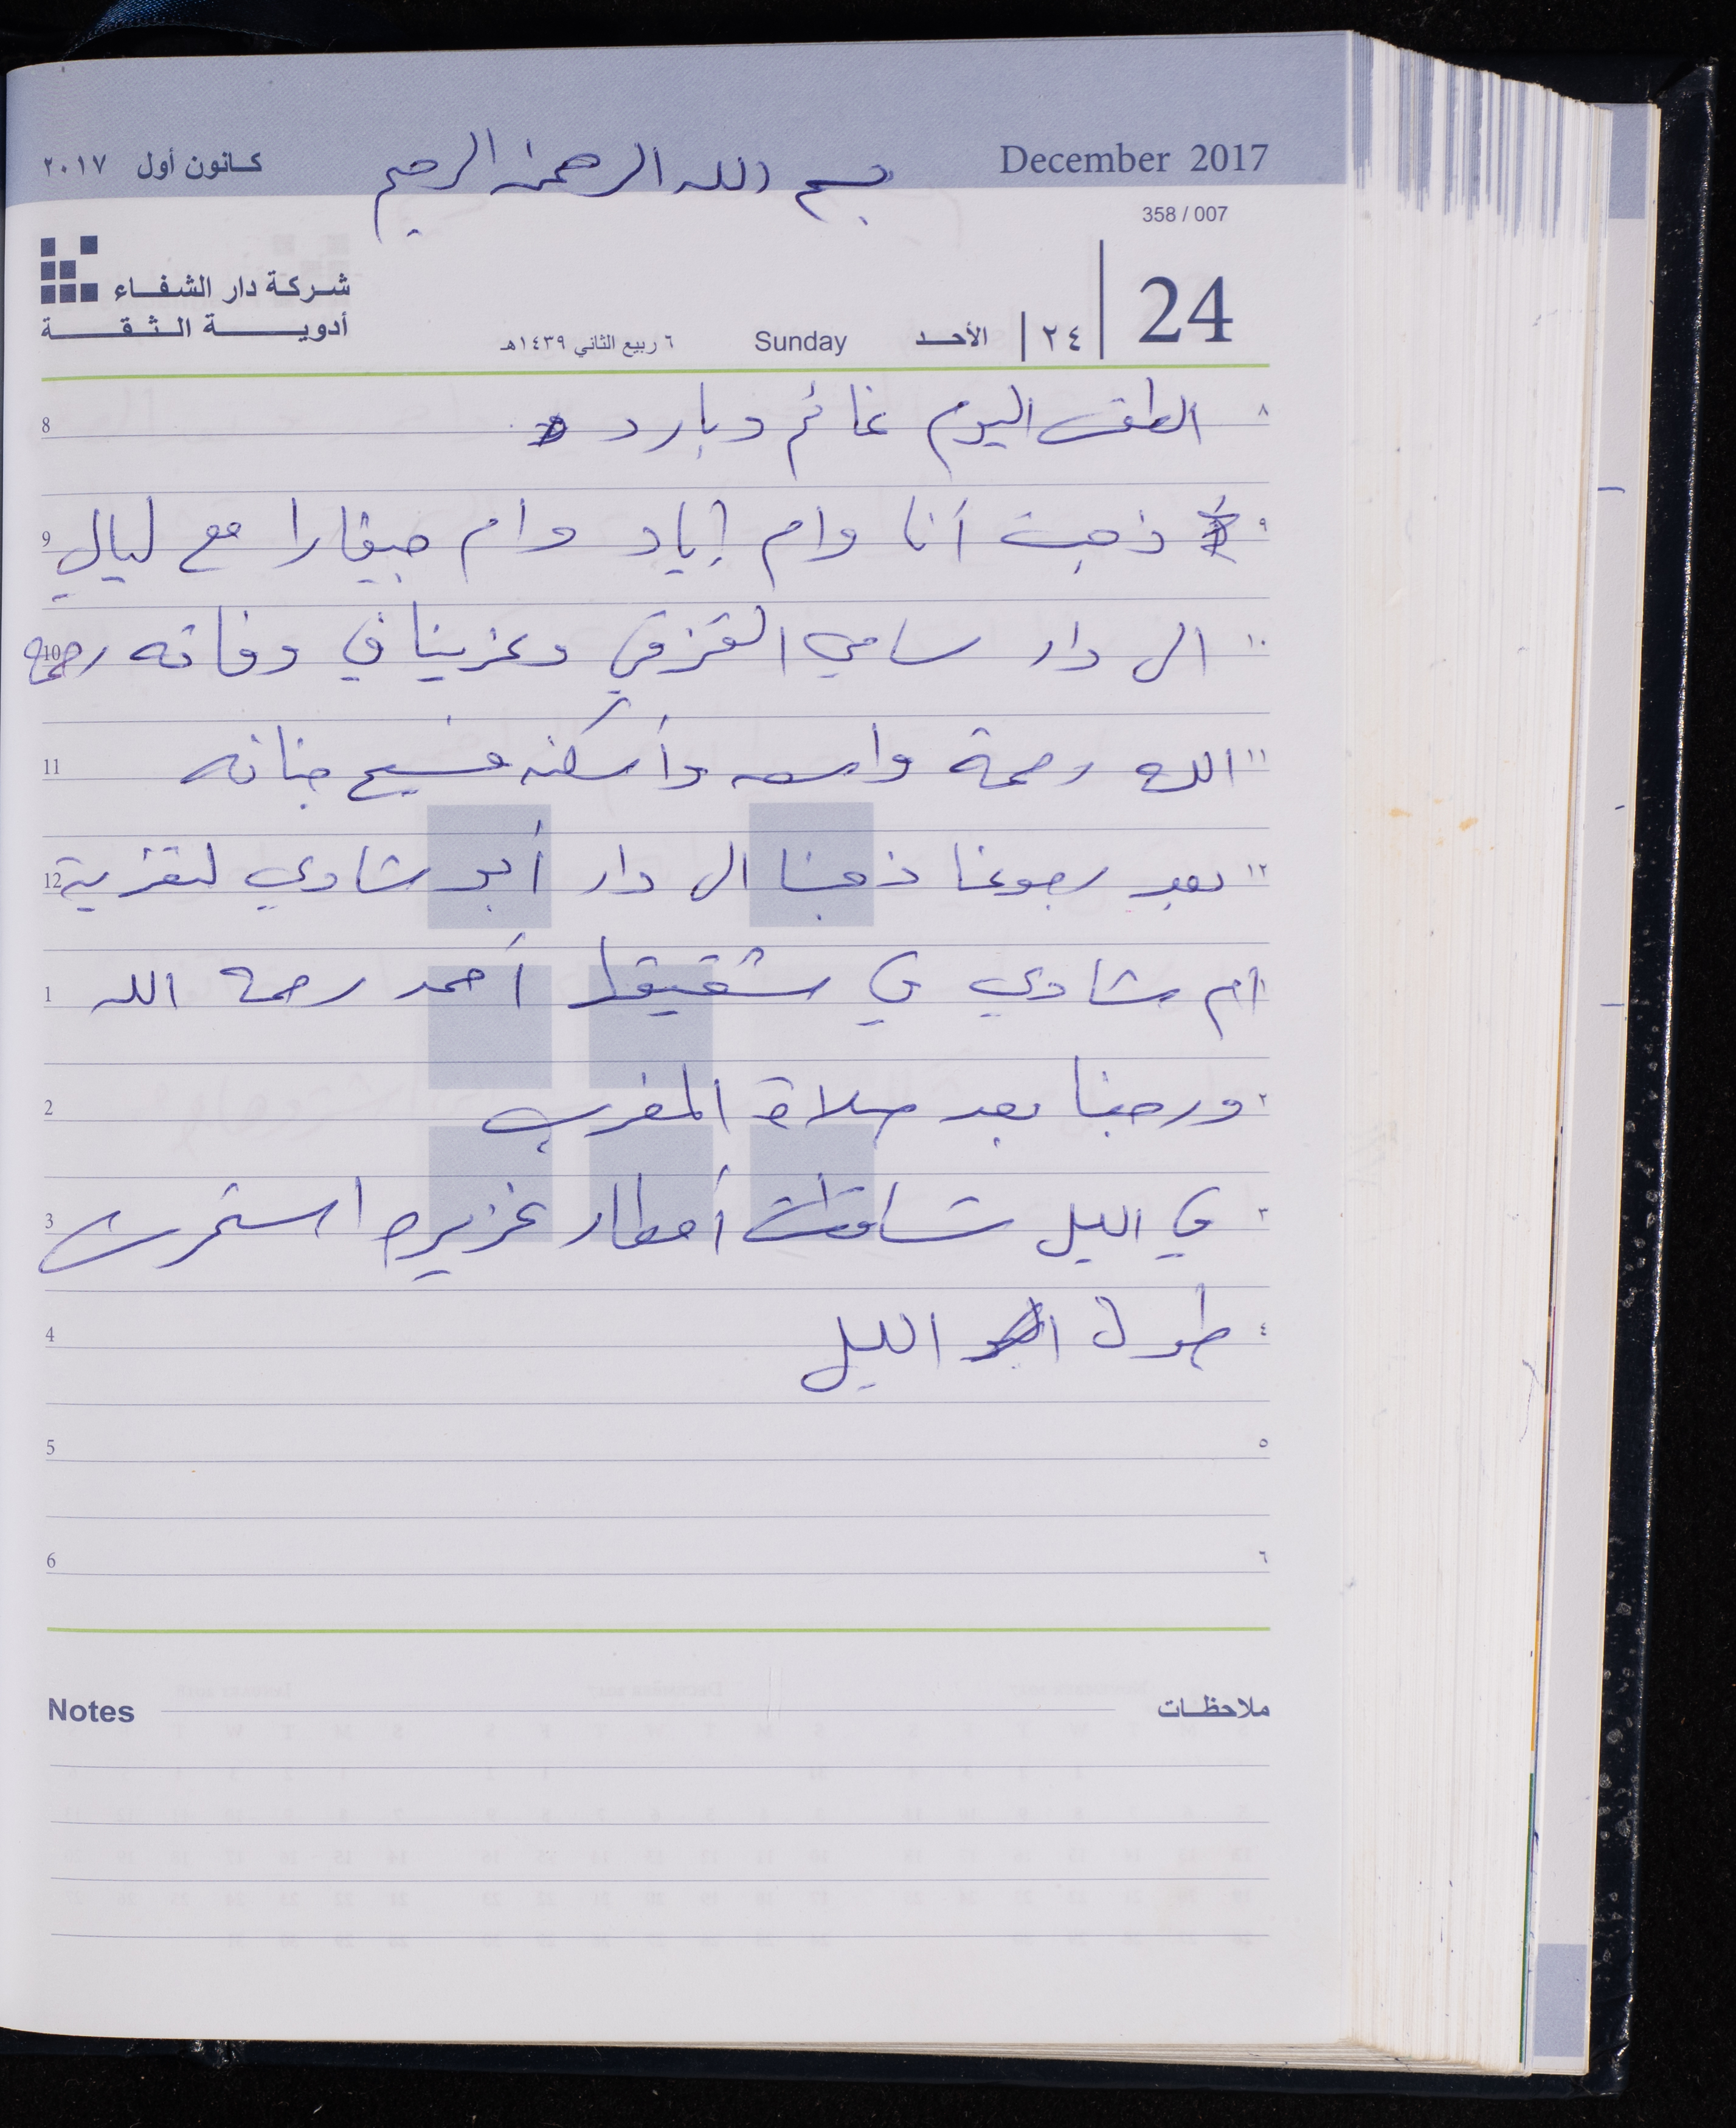 December 2017
بسم الله الرحمن الرحيم
كانون أول ٢٠١٧
358 / 007
24
٢٤
الأحد
Sunday
٦ ربيع الثاني ١٤٣٩هـ
شركة دار الشفاء
أدوية الثقة
٨ الطقس اليوم غائم وبارد 8
٩ ذهبت أنا وام إياد وام جيفارا مع ليالي 9
١٠ الى دار سامي القزقي وعزينا في وفاته رحمه 10
١١ الله رحمة واسعه وأسكنه فسيح جنانه 11
١٢ بعد رجوعنا ذهبنا الى دار أبو شادي لتعزية 12
١ أم شادي في شقيقها أحمد رحمه الله 1
٢ ورجعنا بعد صلاة المغرب 2
٣ في الليل تساقطت أمطار غزيره استمرت 3
٤ طول الليل 4
٥ 5
٦ 6
ملاحظات
Notes